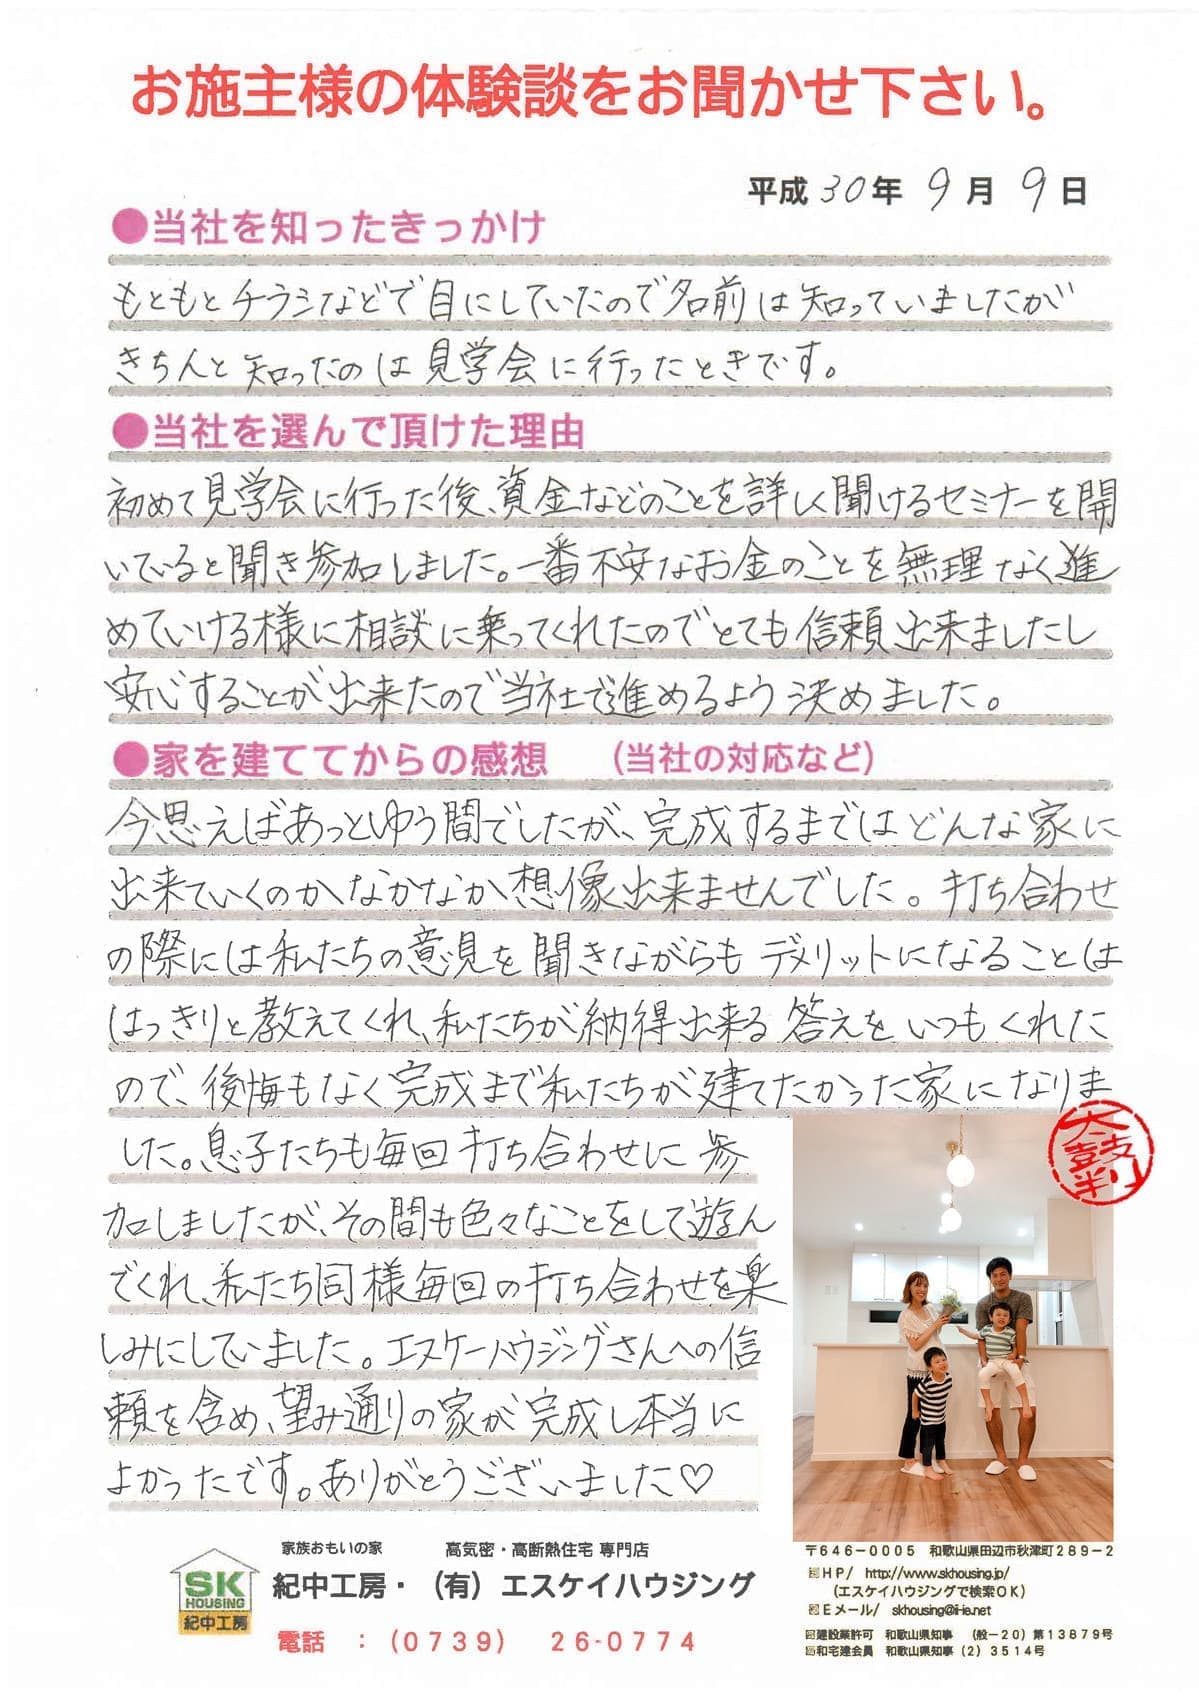 お施主様の体験談をお聞かせ下さい。
平成30年 9月 9日
●当社を知ったきっかけ
もともとチラシなどで目にしていたので名前は知っていましたが
きちんと知ったのは見学会に行ったときです。
●当社を選んで頂けた理由
初めて見学会に行った後、資金などのことを詳しく聞けるセミナーを開
いていると聞き参加しました。一番不安なお金のことを無理なく進
めていける様に相談に乗ってくれたのでとても信頼出来ましたし
安心することが出来たので当社で進めるよう決めました。
●家を建ててからの感想 (当社の対応など)
今思えばあっとゆう間でしたが、完成するまではどんな家に
出来ていくのかなかなか想像出来ませんでした。打ち合わせ
の際には私たちの意見を聞きながらもデメリットになることは
はっきりと教えてくれ、私たちが納得出来る答えをいつもくれた
ので、後悔もなく完成まで私たちが建てたかった家になりま
した。息子たちも毎回打ち合わせに参
加しましたが、その間も色々なことをして遊ん
でくれ、私たち同様毎回の打ち合わせを楽
しみにしていました。エスケーハウジングさんへの信
頼を含め、望み通りの家が完成し本当に
よかったです。ありがとうございました♡
太鼓判
家族おもいの家 高気密・高断熱住宅 専門店
SK
HOUSING
紀中工房
紀中工房・(有)エスケイハウジング
電話 :(0739) 26-0774
〒646-0005 和歌山県田辺市秋津町289-2
HP/ http://www.skhousing.jp/
(エスケイハウジングで検索OK)
Eメール/ skhousing@ii-ie.net
建設業許可 和歌山県知事 (般-20)第13879号
和宅建会員 和歌山県知事(2)3514号